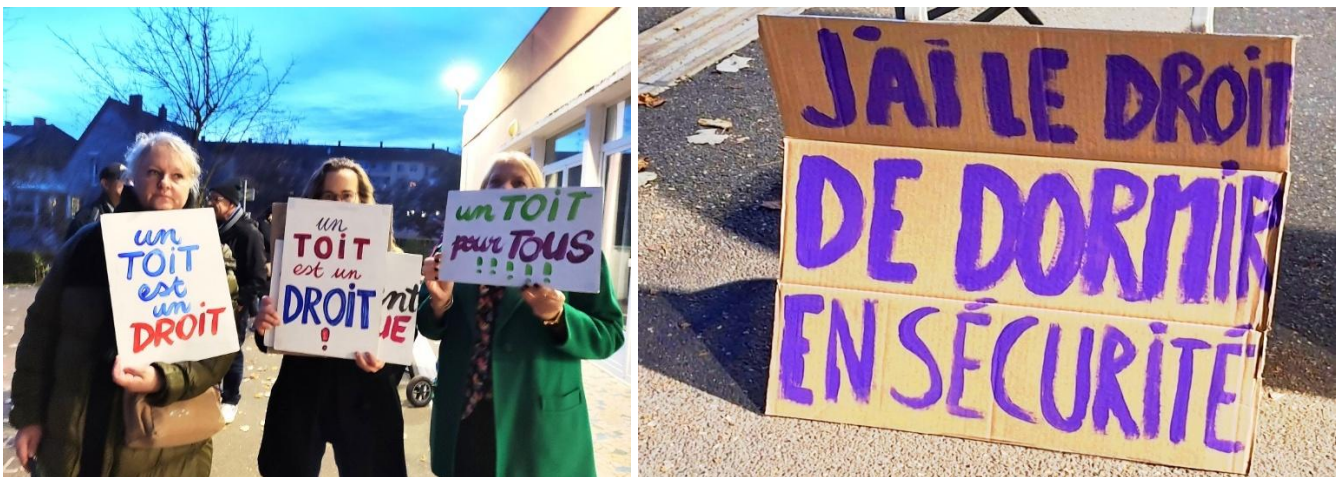 un
TOIT
est
un
DROIT
un
TOIT
est un
DROIT
!
un TOIT
pour TOUS
!!!!!
J'AI LE DROIT
DE DORMIR
EN SÉCURITÉ